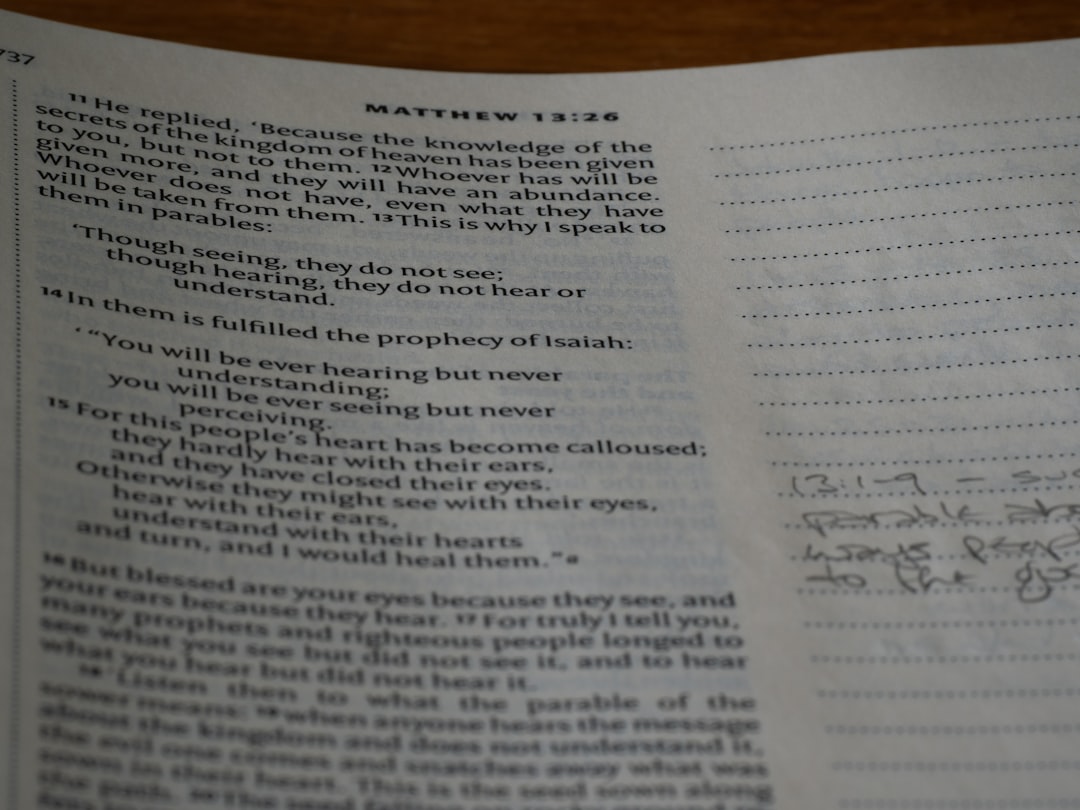 737
MATTHEW 13:26
11 He replied, ‘Because the knowledge of the
secrets of the kingdom of heaven has been given
to you, but not to them. 12 Whoever has will be
given more, and they will have an abundance.
Whoever does not have, even what they have
will be taken from them. 13 This is why I speak to
them in parables:
‘Though seeing, they do not see;
though hearing, they do not hear or
understand.
14 In them is fulfilled the prophecy of Isaiah:
‘ “You will be ever hearing but never
understanding;
you will be ever seeing but never
perceiving.
15 For this people’s heart has become calloused;
they hardly hear with their ears,
and they have closed their eyes.
Otherwise they might see with their eyes,
hear with their ears,
understand with their hearts
and turn, and I would heal them.” a
16 But blessed are your eyes because they see, and
your ears because they hear. 17 For truly I tell you,
many prophets and righteous people longed to
see what you see but did not see it, and to hear
what you hear but did not hear it.
18 ‘Listen then to what the parable of the
sower means: 19 when anyone hears the message
about the kingdom and does not understand it,
the evil one comes and snatches away what was
sown in their heart. This is the seed sown along
the path. 20 The seed falling on rocky ground
13:1-9 –
parable
ways
to the